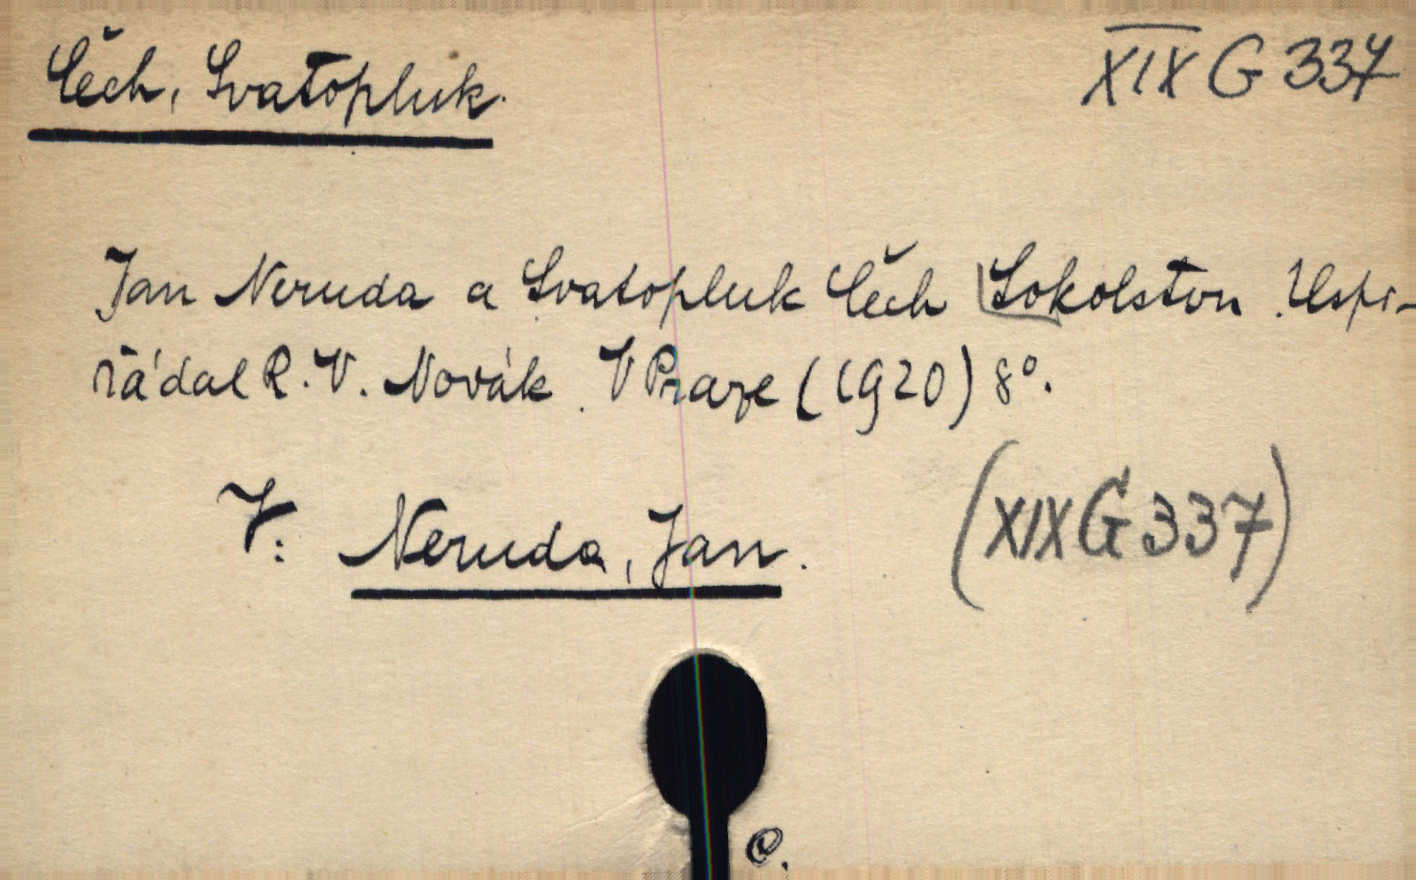 Čech, Svatopluk.
XIX G 337
Jan Neruda a Svatopluk Čech Sokolstvu. Uspo-
řádal R. V. Novák. V Praze (1920) 8°.
V: Neruda, Jan.
(XIX G 337)
C.